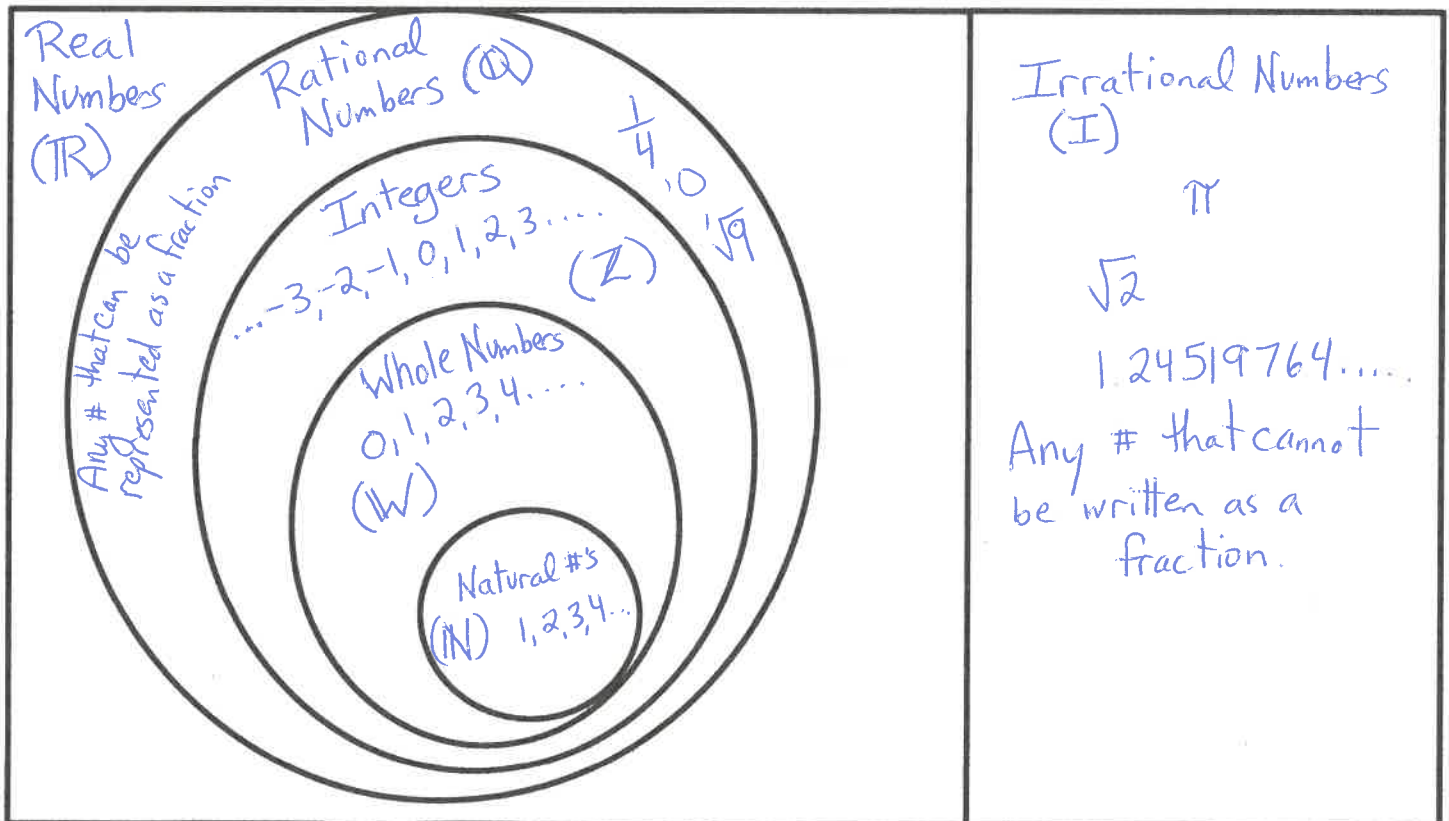 Real
Numbers
(ℝ)
Rational
Numbers (ℚ)
1/4, 0, √9
Any # that can be
represented as a fraction
Integers
....-3,-2,-1, 0, 1, 2, 3....
(ℤ)
Whole Numbers
0, 1, 2, 3, 4.....
(𝕎)
Natural #'s
(ℕ) 1, 2, 3, 4...
Irrational Numbers
(I)
π
√2
1.24519764.....
Any # that cannot
be written as a
fraction.